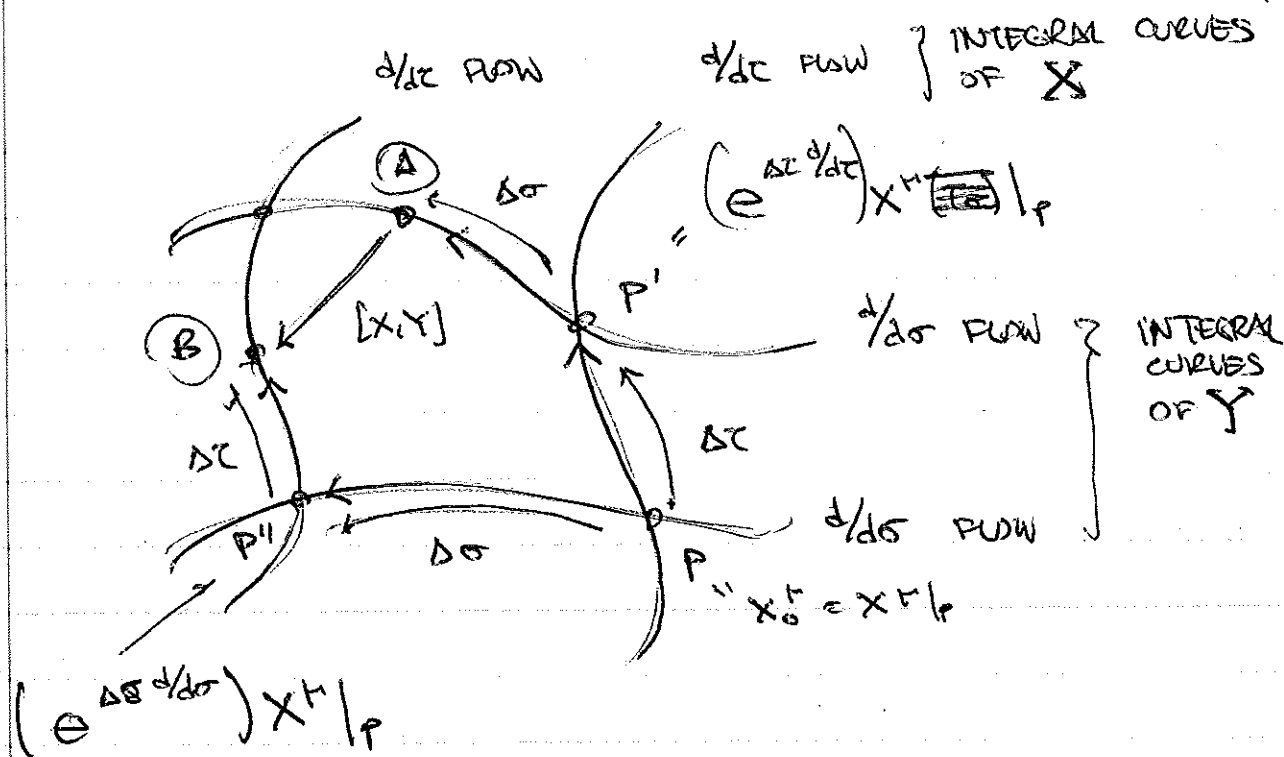 d/dτ FLOW
d/dτ FLOW } INTEGRAL CURVES OF X
A
Δσ
= (e^{Δτ d/dτ}) x^μ |_P
P'
[X,Y]
B
d/dσ FLOW
INTEGRAL CURVES OF Y
Δτ
Δτ
P"
Δσ
P
d/dσ FLOW
= x_0^μ = x^μ|_P
(e^{Δσ d/dσ}) x^μ |_P